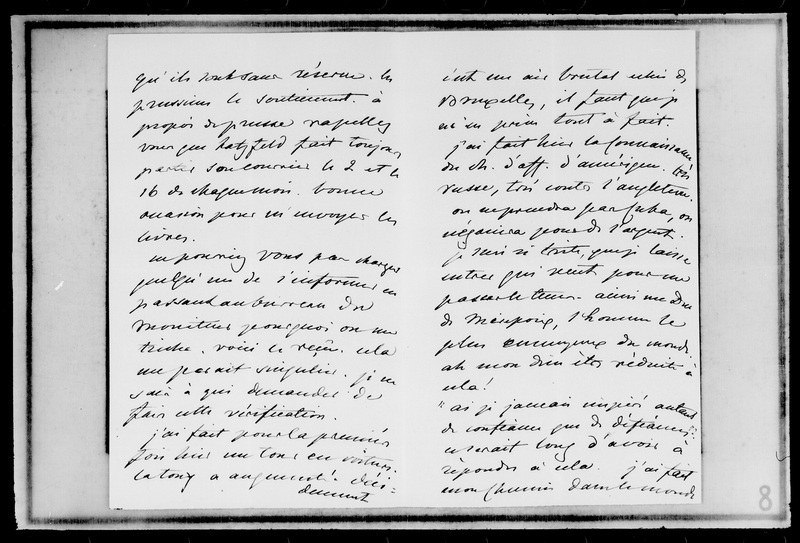 qu'ils sont sans réserve. les
prussiens le soutiennent. à
propos de prusse rappelez
vous que hatzfeld fait toujours
partir son courrier le 2 et le
16 de chaque mois. bonne
occasion pour m'envoyer les
livres.
ne pourriez vous pas charger
quelqu'un de s'informer en
passant au bureau du
moniteur pourquoi on me
triche. voici le reçu. cela
me parait singulier. je ne
sais à qui demander de
faire cette vérification.
j'ai fait pour la première
fois hier un tour en voiture.
la toux a augmenté. déci=
demment
c'est un air brutal celui de
Bruxelles, il faut que je
m'en prive tout à fait
j'ai fait hier la connaissance
du ch. d'aff. d'amérique. très
russe, très contre l'angleterre.
on ne prendra pas Cuba, on
négociera pour de l'argent.
je suis si triste, que je laisse
entrer qui veut pour me
passer le tems. ainsi un Duc
de Mirepoix, l'homme le
plus ennuyeux du monde.
ah mon dieu être réduite à
cela!
" ai je jamais inspiré autant
de confiance que de défiance;"
ce serait long d'avoir à
répondre à cela. j'ai fait
mon chemin dans le monde
8